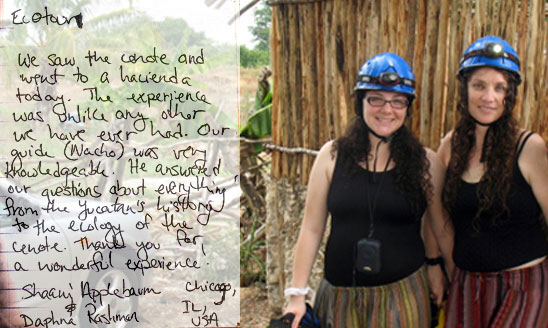 Ecotour
We saw the cenote and
went to a hacienda
today. The experience
was unlike any other
we have ever had. Our
guide (Nacho) was very
knowledgeable. He answered
our questions about everything
from the Yucatan's history
to the ecology of the
cenote. Thank you for
a wonderful experience!
Applebaum Chicago,
& IL,
Daphna USA